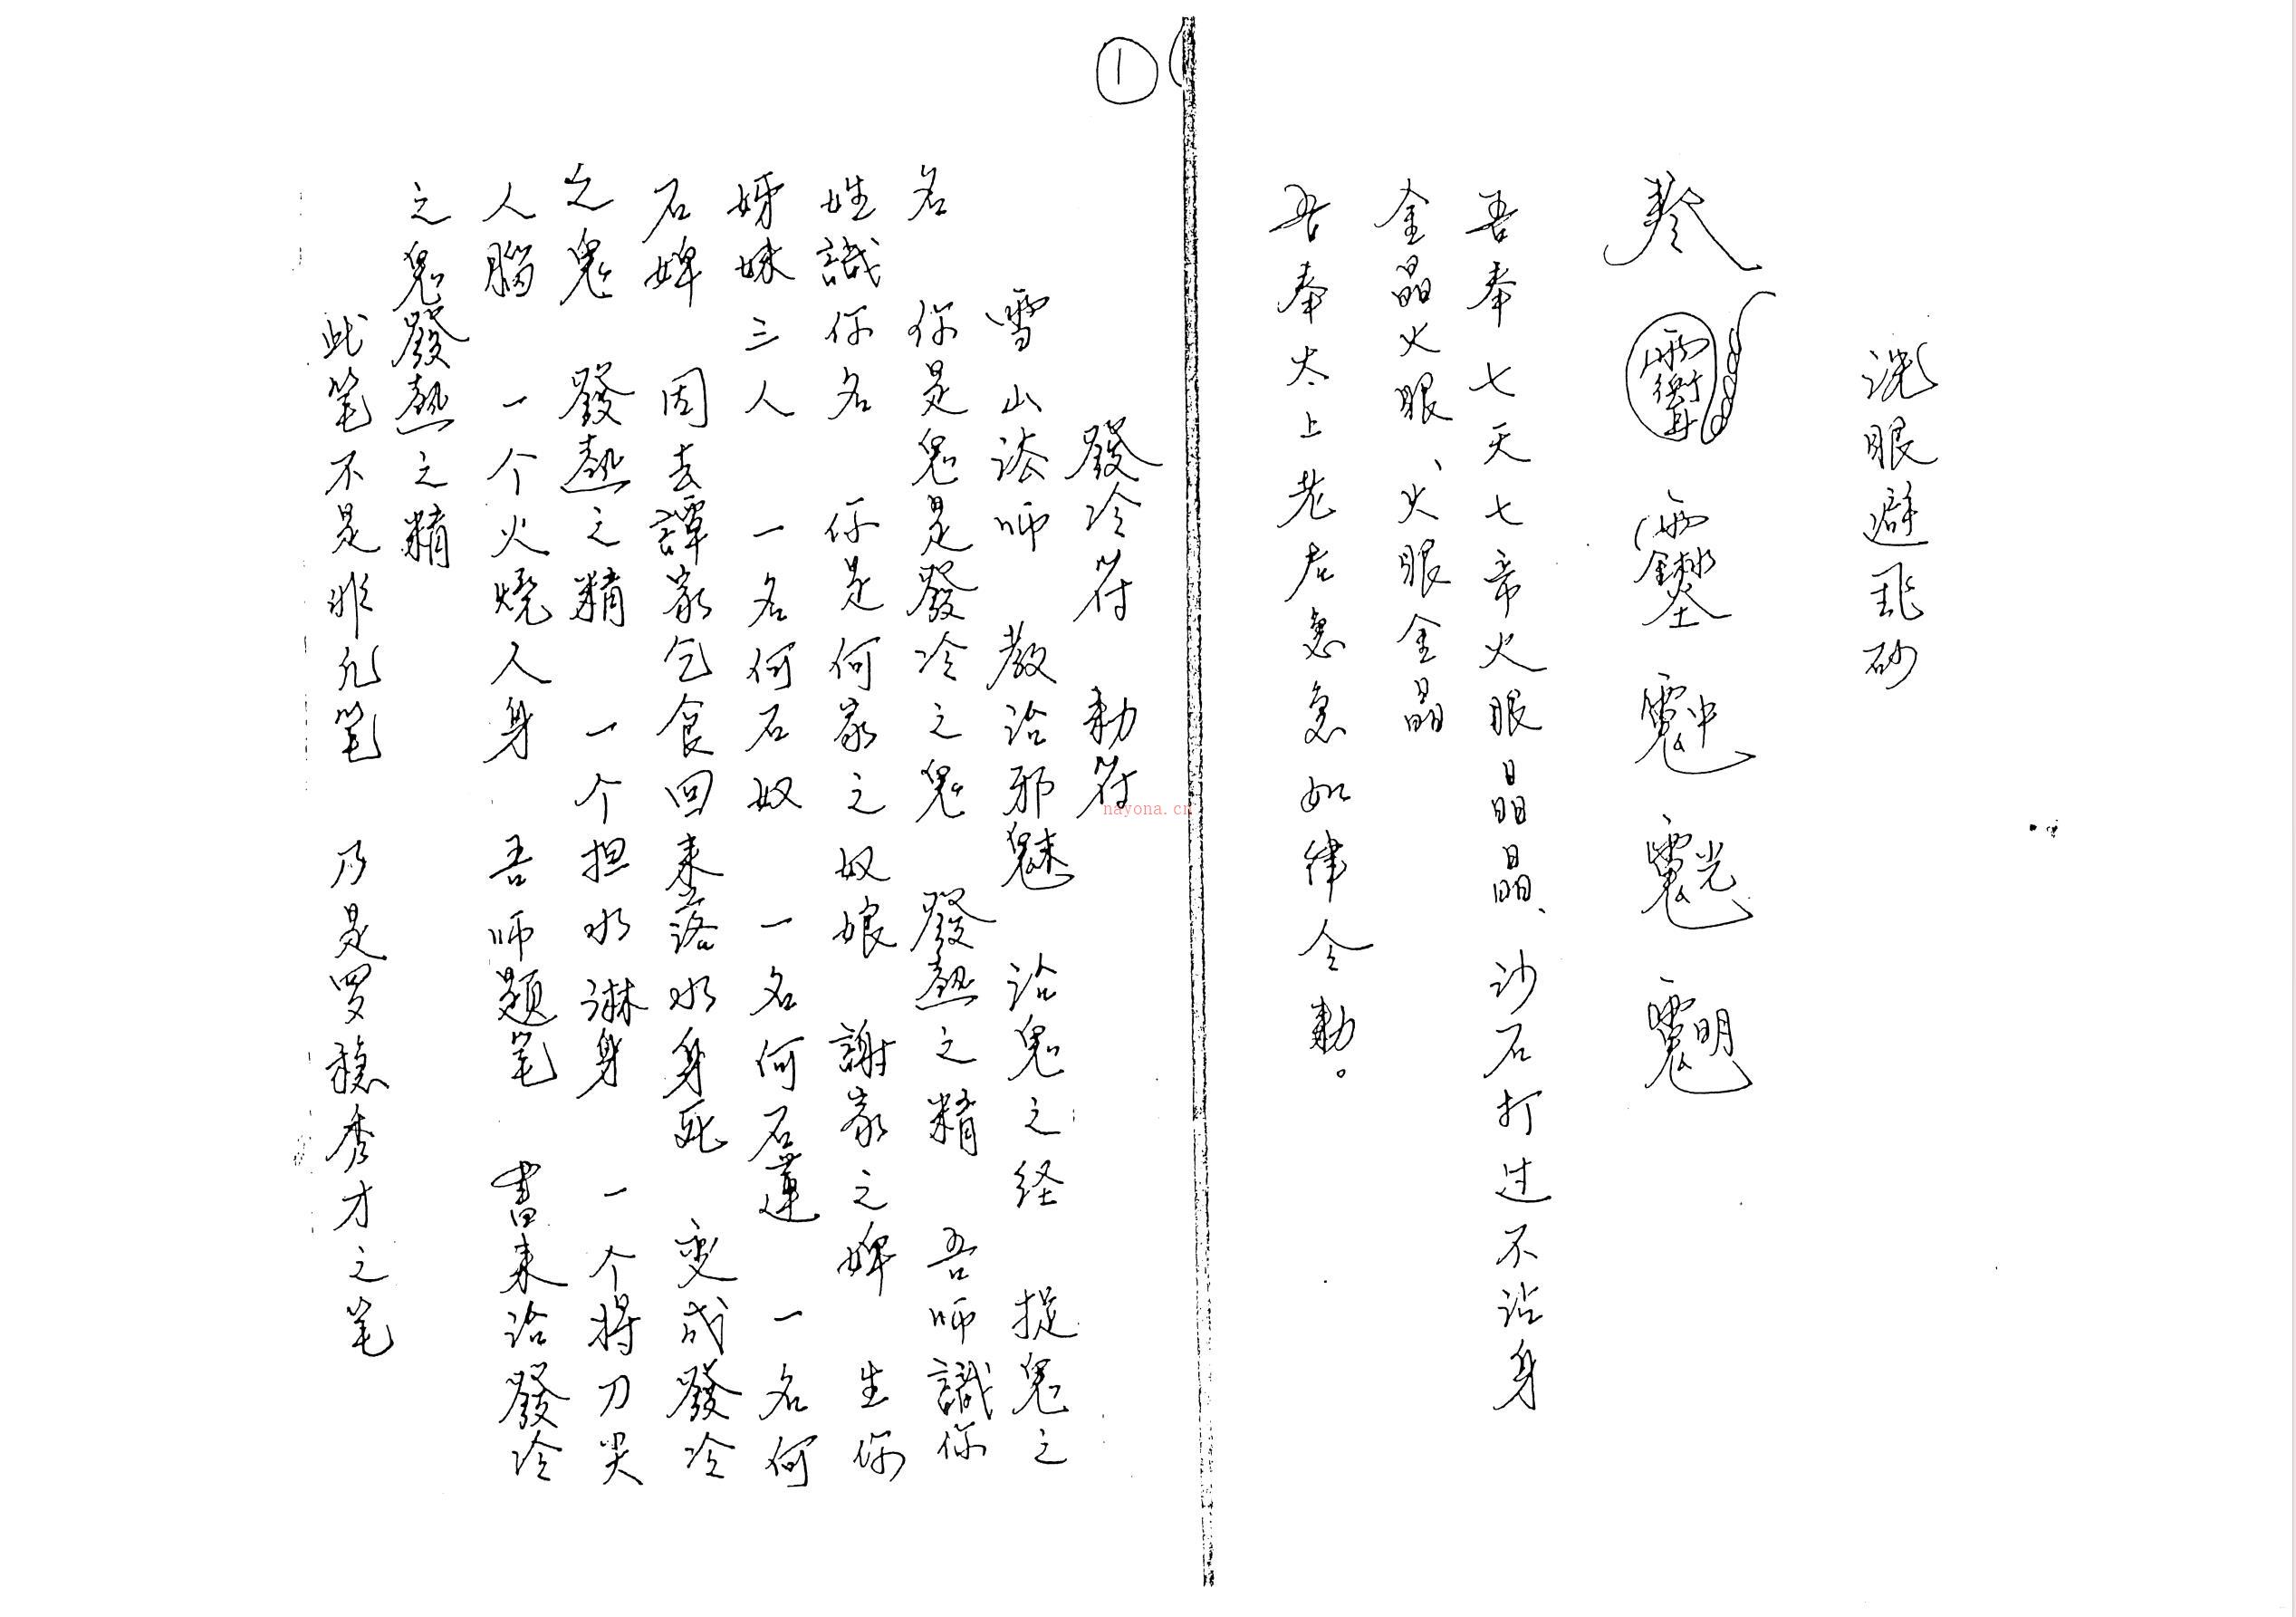 洗眼避飛砂
吾奉七天七帝火眼晶晶、沙石打过不沾身
金晶火眼、火眼金晶
吾奉太上老君急急如律令勅。
①
發冷符 勅符
雪山法师 教治邪魅 治鬼之经 捉鬼之
名 你是鬼是發冷之鬼 發熱之精 吾师識你
姓識你名 你是何家之奴娘 謝家之婢 生你
姊妹三人 一名何石奴 一名何石蓮 一名何
石婢 因去譚家乞食回来落水身死 变成發冷
之鬼 發熱之精 一个担水淋身 一个将刀尖
人腦 一个火燒人身 吾师題笔 書来治發冷
之鬼發熱之精
此笔不是非凡笔 乃是罗穏秀才之笔
nayona.cn